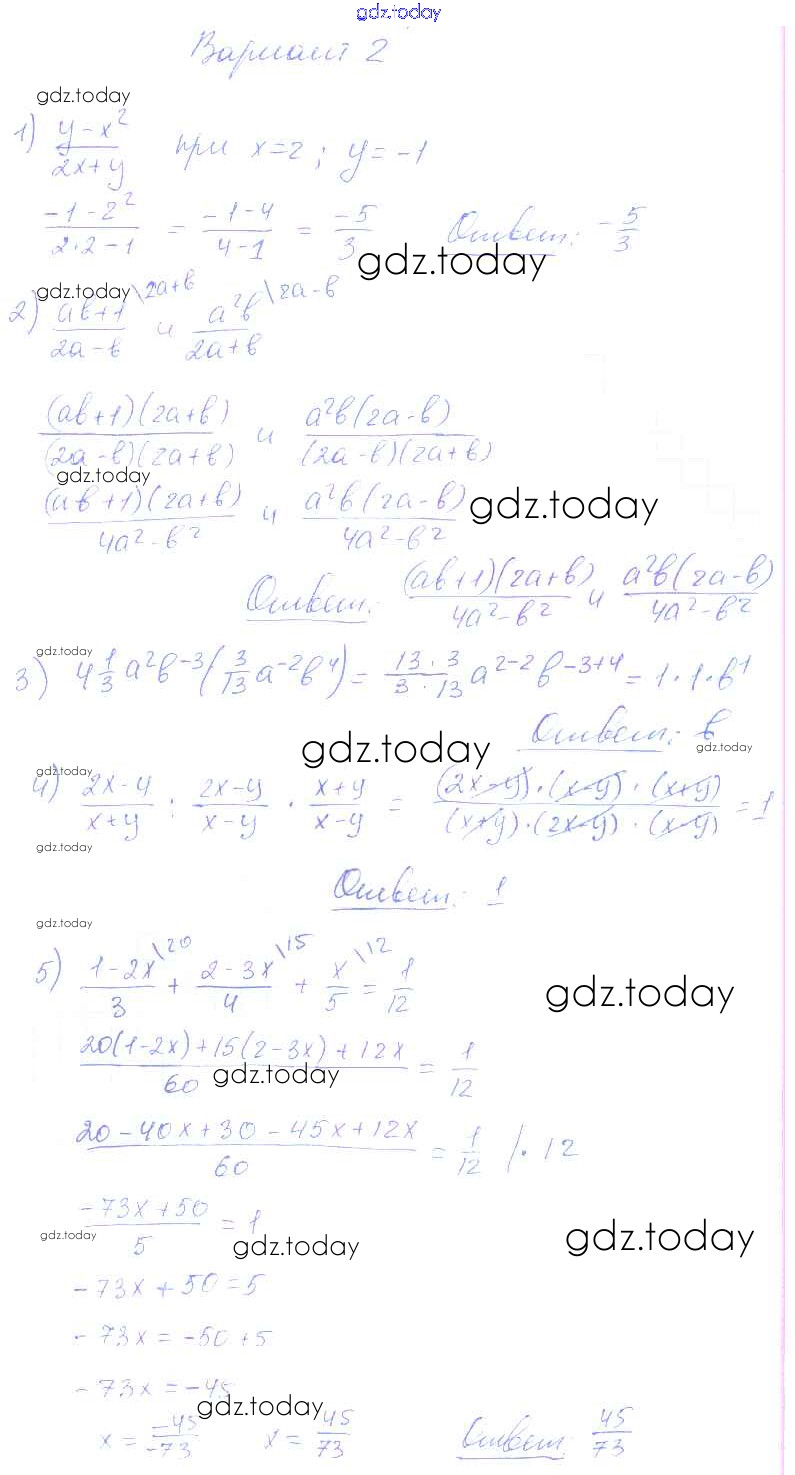 gdz.today
Вариант 2
gdz.today
1) (y-x²)/(2x+y) при x=2; y=-1
(-1-2²)/(2·2-1) = (-1-4)/(4-1) = (-5)/3 Ответ: -5/3
gdz.today
gdz.today
2) (ab+1)/(2a-b) \2a+b и (a²b)/(2a+b) \2a-b
((ab+1)(2a+b))/((2a-b)(2a+b)) и (a²b(2a-b))/((2a-b)(2a+b))
gdz.today
((ab+1)(2a+b))/(4a²-b²) и (a²b(2a-b))/(4a²-b²) gdz.today
Ответ: ((ab+1)(2a+b))/(4a²-b²) и (a²b(2a-b))/(4a²-b²)
gdz.today
3) 4 1/3 a²b⁻³(3/13 a⁻²b⁴) = (13·3)/(3·13) a²⁻²b⁻³⁺⁴ = 1·1·b¹
gdz.today Ответ: b
gdz.today
gdz.today
4) (2x-y)/(x+y) : (2x-y)/(x-y) · (x+y)/(x-y) = ((2x-y)·(x-y)·(x+y))/((x+y)·(2x-y)·(x-y)) = 1
gdz.today
Ответ: 1
gdz.today
5) (1-2x)/3 \20 + (2-3x)/4 \15 + x/5 \12 = 1/12
gdz.today
(20(1-2x)+15(2-3x)+12x)/60 = 1/12
gdz.today
(20-40x+30-45x+12x)/60 = 1/12 |·12
(-73x+50)/5 = 1
gdz.today gdz.today gdz.today
-73x+50=5
-73x=-50+5
-73x=-45
gdz.today
x=(-45)/(-73) x=45/73 Ответ: 45/73